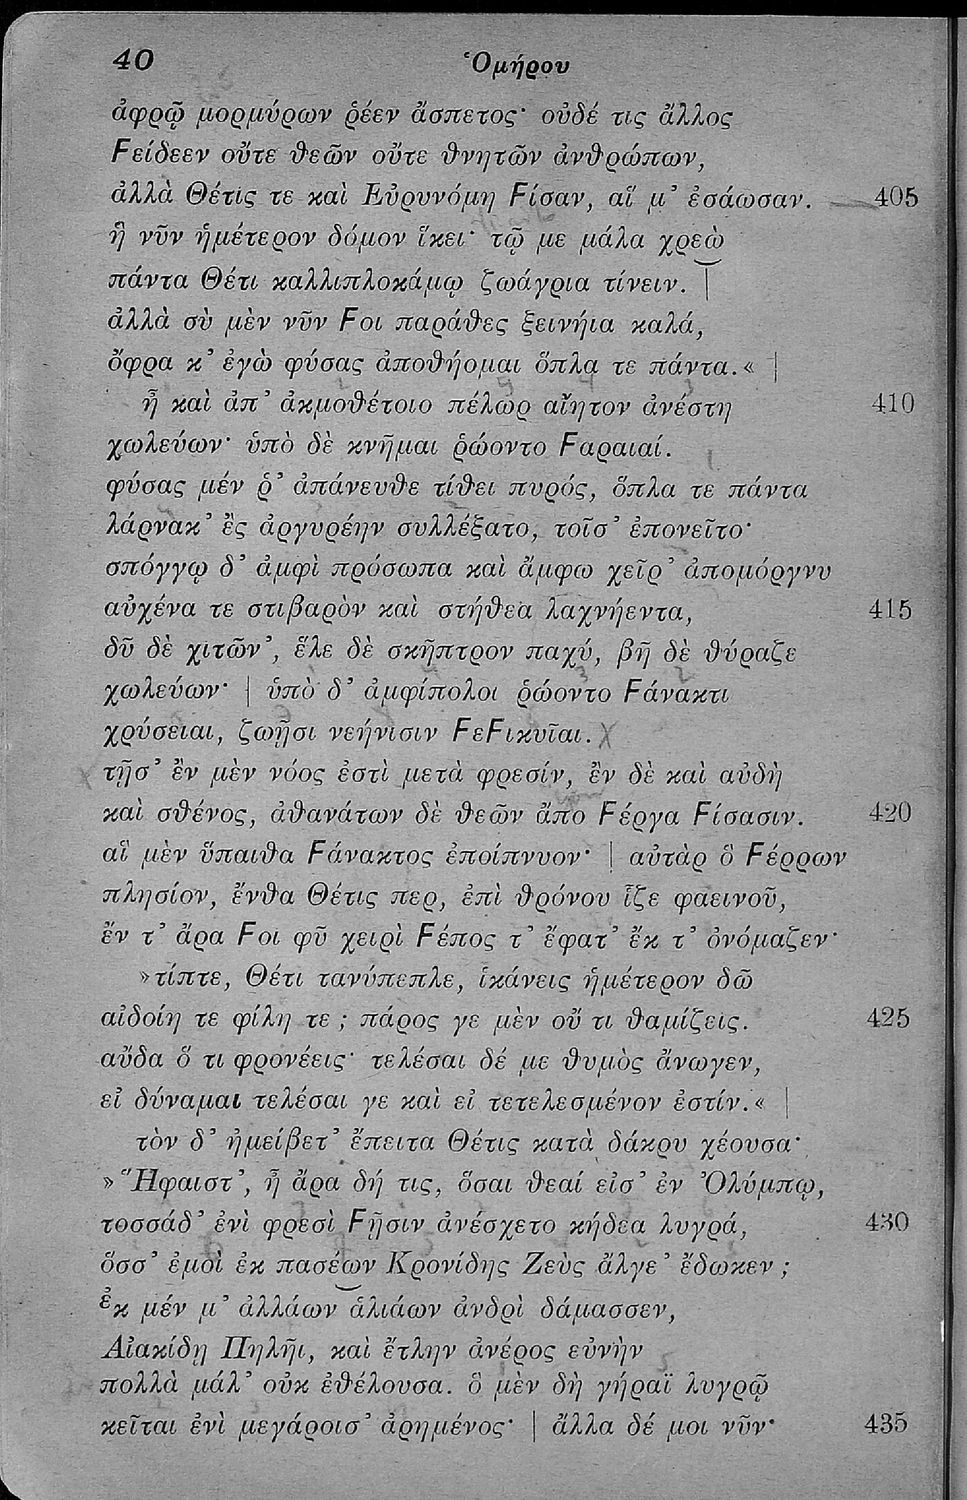 40 Ὁμήρου
ἀφρῷ μορμύρων ῥέεν ἄσπετος· οὐδέ τις ἄλλος
Ϝείδεεν οὔτε θεῶν οὔτε θνητῶν ἀνθρώπων,
ἀλλὰ Θέτις τε καὶ Εὐρυνόμη Ϝίσαν, αἵ μ' ἐσάωσαν. 405
ἣ νῦν ἡμέτερον δόμον ἵκει· τῷ με μάλα χρεὼ
πάντα Θέτι καλλιπλοκάμῳ ζωάγρια τίνειν. |
ἀλλὰ σὺ μὲν νῦν Ϝοι παράθες ξεινήια καλά,
ὄφρα κ' ἐγὼ φύσας ἀποθήομαι ὅπλα τε πάντα.« |
ἦ καὶ ἀπ' ἀκμοθέτοιο πέλωρ αἴητον ἀνέστη 410
χωλεύων· ὑπὸ δὲ κνῆμαι ῥώοντο Ϝαραιαί.
φύσας μέν ῥ' ἀπάνευθε τίθει πυρός, ὅπλα τε πάντα
λάρνακ' ἐς ἀργυρέην συλλέξατο, τοῖσ' ἐπονεῖτο·
σπόγγῳ δ' ἀμφὶ πρόσωπα καὶ ἄμφω χεῖρ' ἀπομόργνυ
αὐχένα τε στιβαρὸν καὶ στήθεα λαχνήεντα, 415
δῦ δὲ χιτῶν', ἕλε δὲ σκῆπτρον παχύ, βῆ δὲ θύραζε
χωλεύων· | ὑπὸ δ' ἀμφίπολοι ῥώοντο Ϝάνακτι
χρύσειαι, ζωῇσι νεήνισιν ϜεϜικυῖαι.
τῇσ' ἒν μὲν νόος ἐστὶ μετὰ φρεσίν, ἒν δὲ καὶ αὐδὴ
καὶ σθένος, ἀθανάτων δὲ θεῶν ἄπο Ϝέργα Ϝίσασιν. 420
αἳ μὲν ὕπαιθα Ϝάνακτος ἐποίπνυον· | αὐτὰρ ὃ Ϝέρρων
πλησίον, ἔνθα Θέτις περ, ἐπὶ θρόνου ἷζε φαεινοῦ,
ἔν τ' ἄρα Ϝοι φῦ χειρὶ Ϝέπος τ' ἔφατ' ἔκ τ' ὀνόμαζεν·
»τίπτε, Θέτι τανύπεπλε, ἱκάνεις ἡμέτερον δῶ
αἰδοίη τε φίλη τε; πάρος γε μὲν οὔ τι θαμίζεις. 425
αὔδα ὅ τι φρονέεις· τελέσαι δέ με θυμὸς ἄνωγεν,
εἰ δύναμαι τελέσαι γε καὶ εἰ τετελεσμένον ἐστίν.« |
τὸν δ' ἠμείβετ' ἔπειτα Θέτις κατὰ δάκρυ χέουσα·
»Ἥφαιστ', ἦ ἄρα δή τις, ὅσαι θεαί εἰσ' ἐν Ὀλύμπῳ,
τοσσάδ' ἐνὶ φρεσὶ Ϝῇσιν ἀνέσχετο κήδεα λυγρά, 430
ὅσσ' ἐμοὶ ἐκ πασέων Κρονίδης Ζεὺς ἄλγε' ἔδωκεν;
ἐκ μέν μ' ἀλλάων ἁλιάων ἀνδρὶ δάμασσεν,
Αἰακίδῃ Πηλῆι, καὶ ἔτλην ἀνέρος εὐνὴν
πολλὰ μάλ' οὐκ ἐθέλουσα. ὃ μὲν δὴ γήραϊ λυγρῷ
κεῖται ἐνὶ μεγάροισ' ἀρημένος· | ἄλλα δέ μοι νῦν· 435